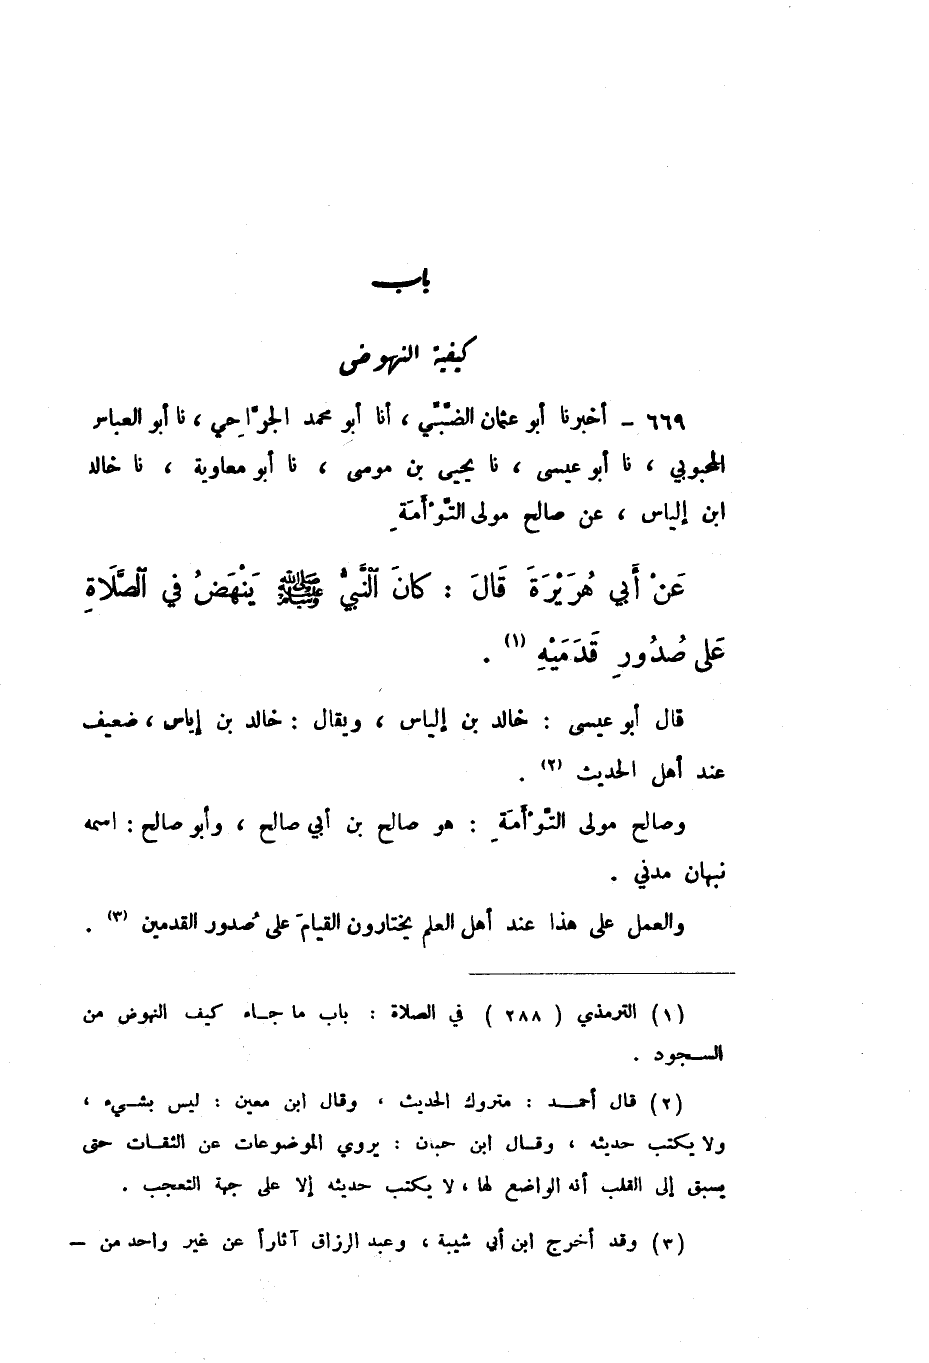 باب
كيفية النهوض
٦٦٩ – أخبرنا أبو عثمان الضَّبِّي ، أنا أبو محمد الجرَّاحِي ، نا أبو العباس
المحبوبي ، نا أبو عيسى ، نا يحيى بن موسى ، نا أبو معاوية ، نا خالد
ابن إلياس ، عن صالح مولى التَّوْأَمَةِ
عَنْ أَبِي هُرَيْرَةَ قَالَ : كَانَ النَّبِيُّ ﷺ يَنْهَضُ فِي الصَّلَاةِ
عَلى صُدُورِ قَدَمَيْهِ (١) .
قال أبو عيسى : خالد بن إلياس ، ويقال : خالد بن إياس ، ضعيف
عند أهل الحديث (٢) .
وصالح مولى التَّوْأَمَةِ : هو صالح بن أبي صالح ، وأبو صالح : اسمه
نبهان مدني .
والعمل على هذا عند أهل العلم يختارون القيامَ على صُدور القدمين (٣) .
(١) الترمذي ( ٢٨٨ ) في الصلاة : باب ما جاء كيف النهوض من
السجود .
(٢) قال أحمد : متروك الحديث ، وقال ابن معين : ليس بشيء ،
ولا يكتب حديثه ، وقال ابن حبان : يروي الموضوعات عن الثقات حتى
يسبق إلى القلب أنه الواضع لها ، لا يكتب حديثه إلا على جهة التعجب .
(٣) وقد أخرج ابن أبي شيبة ، وعبد الرزاق آثاراً عن غير واحد من –